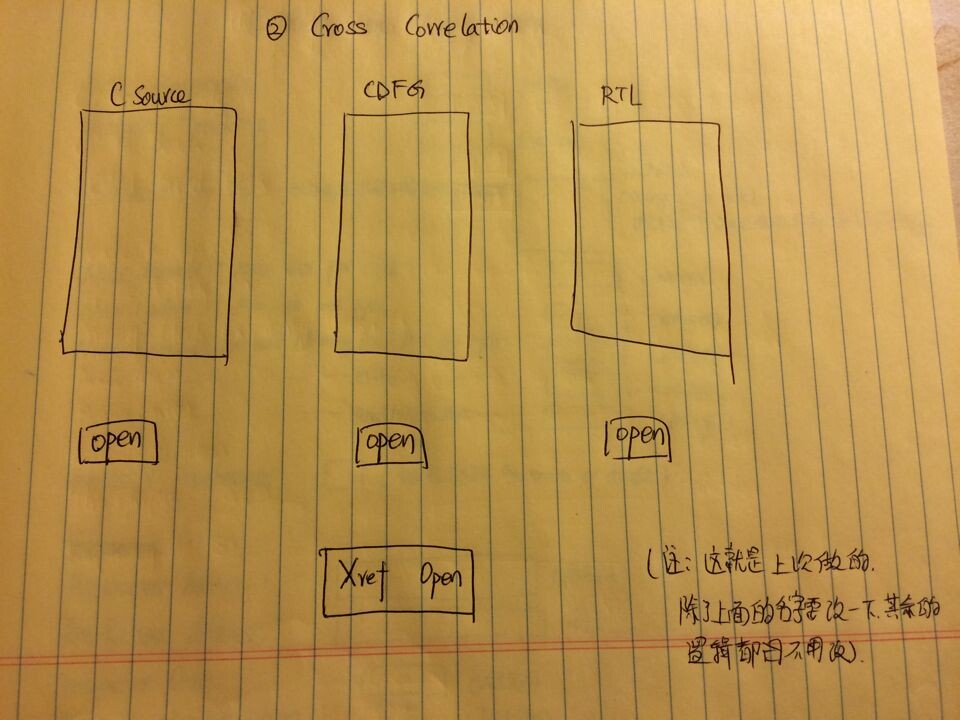 ② Cross Correlation
C Source CDFG RTL
open open open
Xref Open
(注: 这就是上次做的.
除了上面的名字要改一下.其余的
逻辑都因不用改).